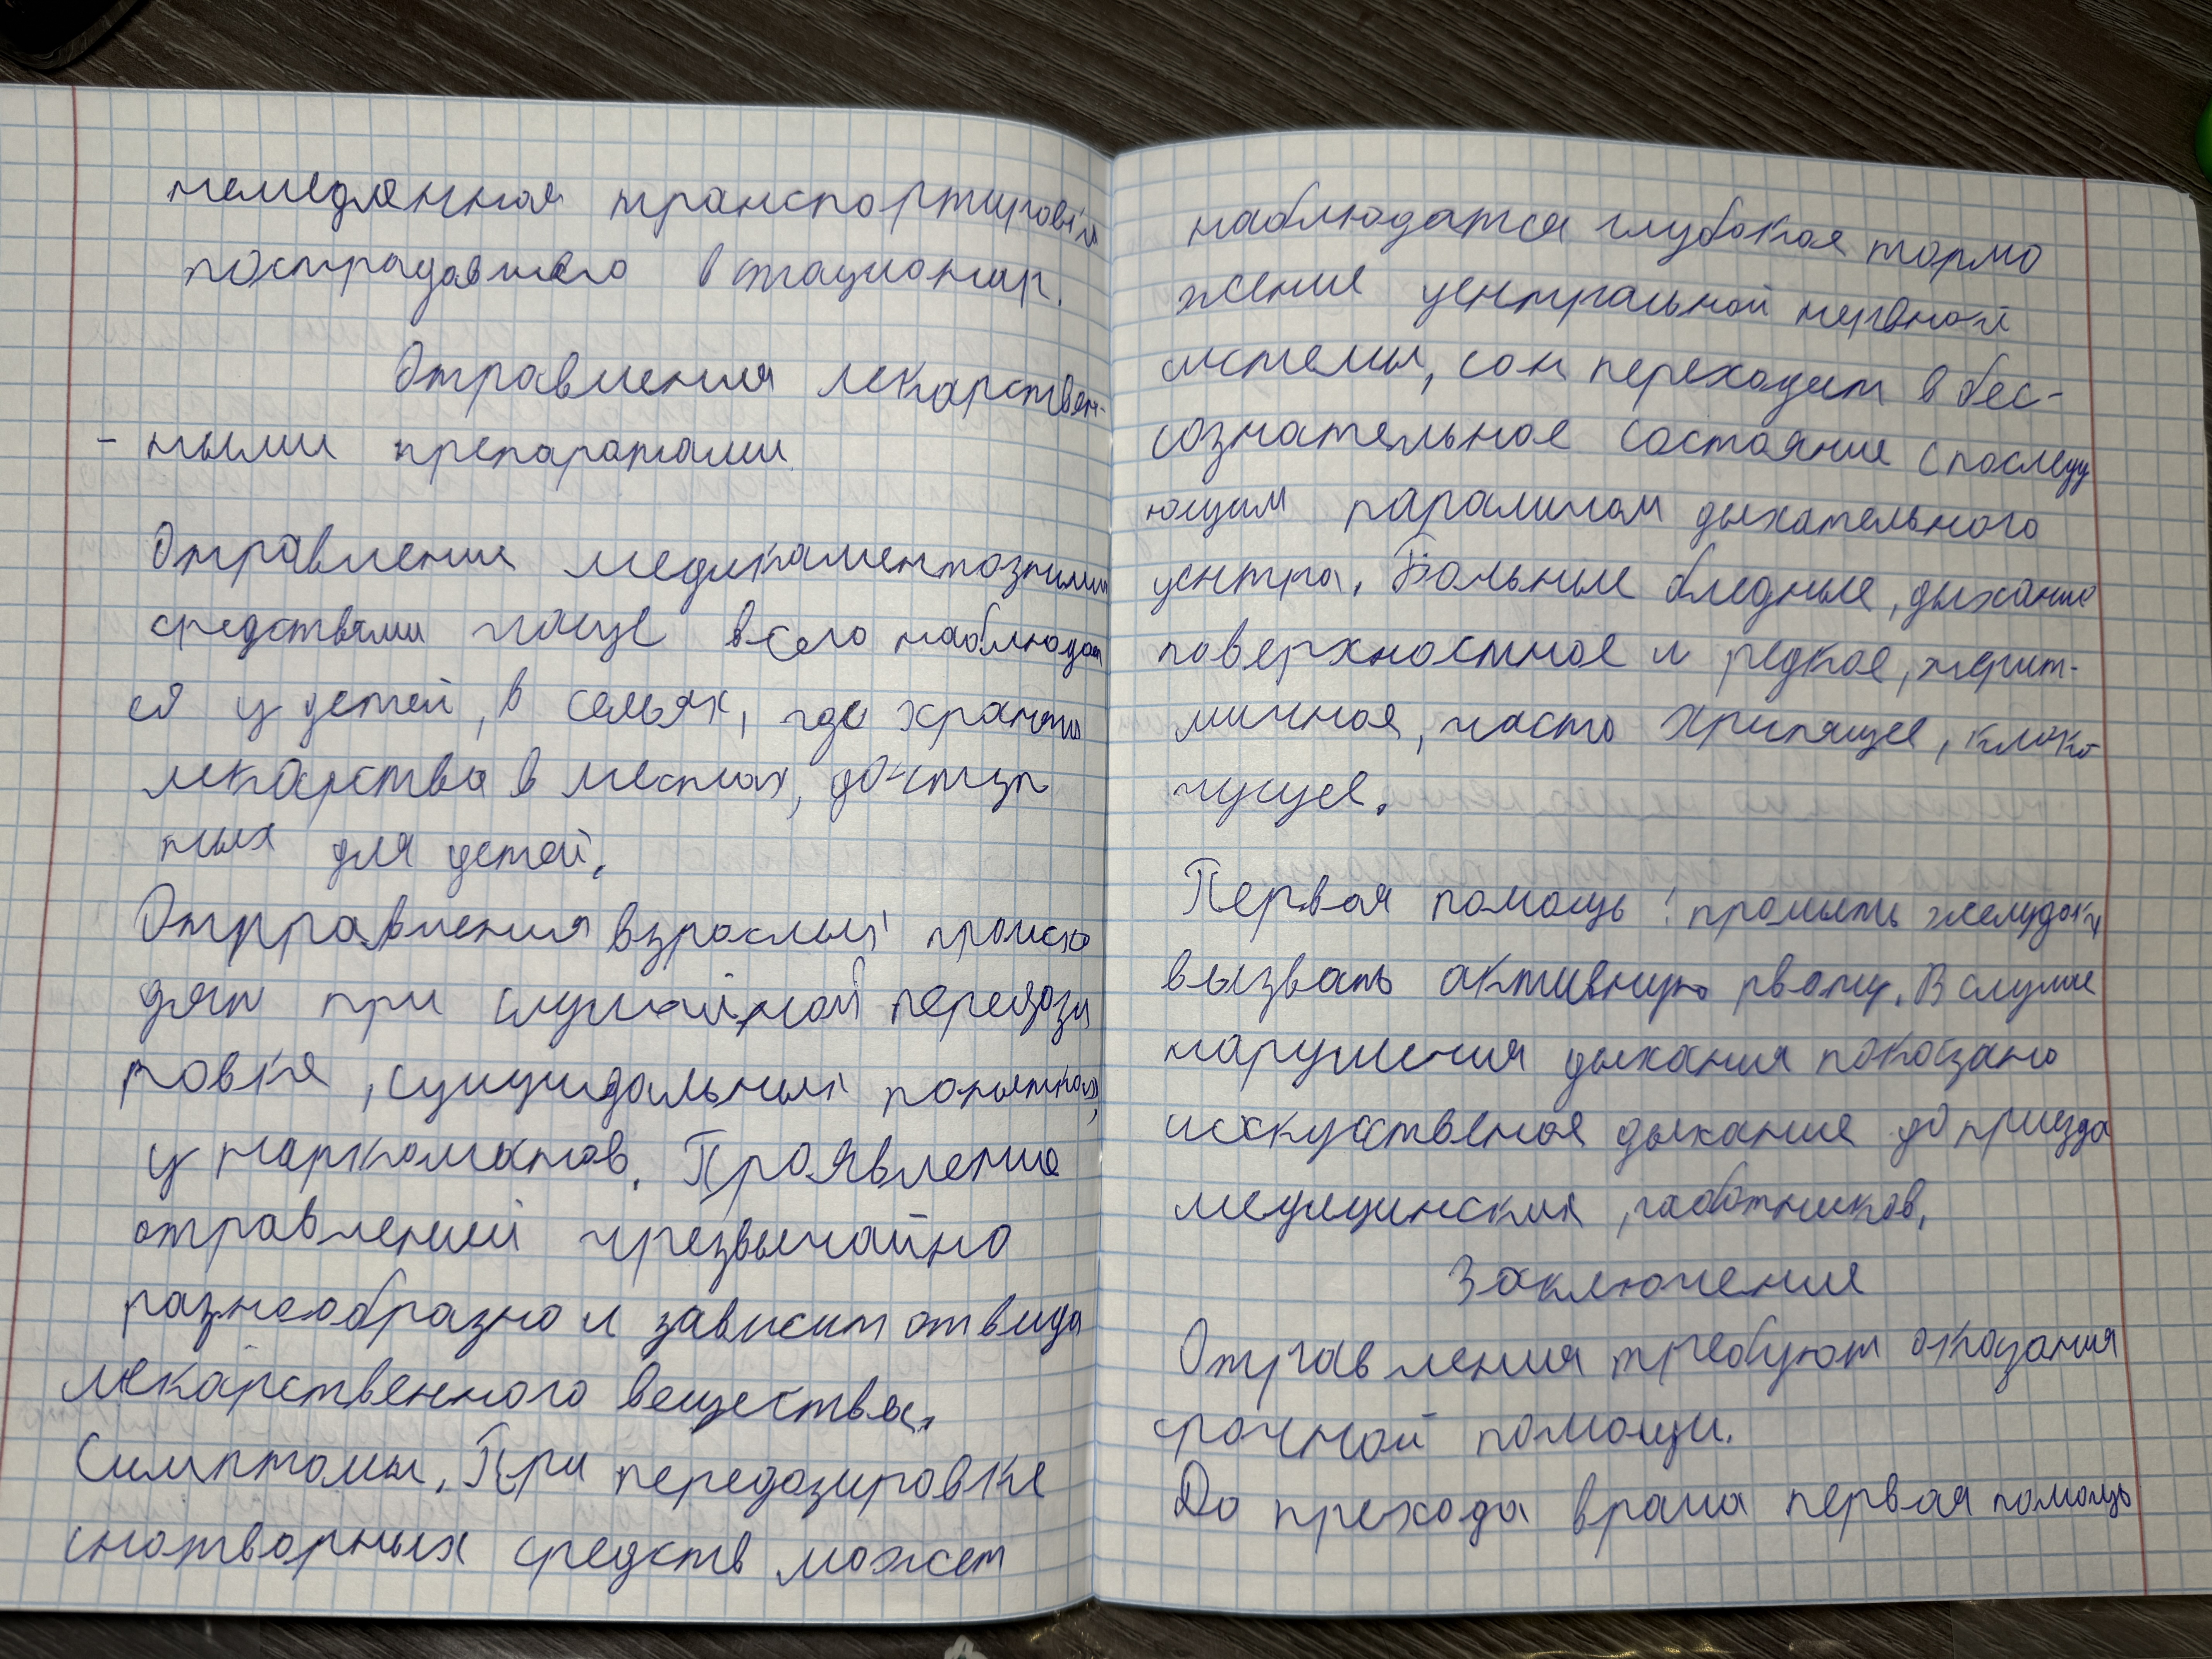 немедленная транспортировка
пострадавшего в стационар.
Отравления лекарствен-
- ными препаратами
Отравления медикаментозными
средствами чаще всего наблюдают
ся у детей, в семьях, где хранят
лекарства в местах, доступ
ных для детей.
Отравления взрослых происхо
дят при случайной передози
ровке, суицидальных попытках,
у наркоманов. Проявление
отравлений чрезвычайно
разнообразно и зависит от вида
лекарственного вещества.
Симптомы. При передозировке
снотворных средств может
наблюдатся глубокая тормо
жение центральной нервной
системы, сон переходит в бес-
сознательное состояние с последу
ющим параличом дыхательного
центра. Больные бледные, дыхание
поверхностное и редкое, нерит-
мичное, часто хрипящее, клоко
чущее.
Первая помощь: промыть желудок,
вызвать активную рвоту. В случае
нарушения дыхания показано
искуственное дыхание до приезда
медицинских работников.
Заключение
Отравления требуют оказания
срочной помощи.
До прехода врача первая помощь